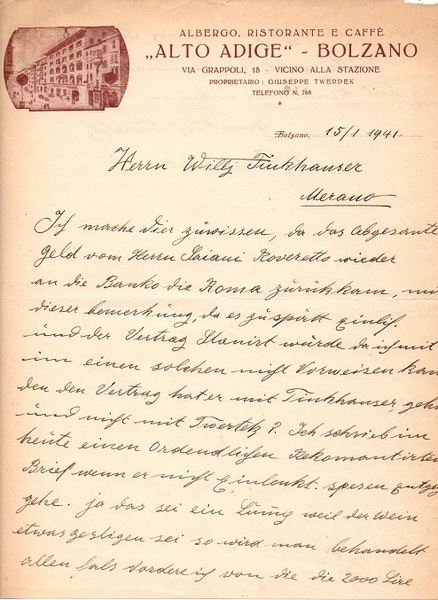 ALBERGO, RISTORANTE E CAFFÈ
„ALTO ADIGE“ - BOLZANO
VIA GRAPPOLI, 15 - VICINO ALLA STAZIONE
PROPRIETARIO: GIUSEPPE TWERDEK
TELEFONO N. 768
Bolzano, 15/1 1941.
Herrn Willj Tinkhauser
Merano
Ich mache dier zuwissen, da das abgesante
Geld vom Herrn Roveretto wieder
an die Banko die Roma zurükkam, mi
dieser bemerkung, da es zu spätt einlif.
und der Vertrag würde da ich mit
im einen solchen nicht Vorweisen kan
den den Vertrag hat er mit Tinkhauser, gehn
und nicht mit Twertek? Ich schrieb im
heute einen Ordendligen Rekomantirten
Brief wenn er nicht Einlenkt. spesen entge
gehe. ja das sei ein weil der Wein
etwas gestigen sei so wird man behandelt
allen fals vordere ich von die die 2000 Lire